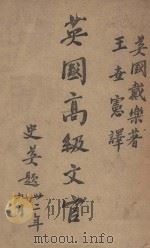 英國戴樂著
王世憲譯
英國高級文官
史英題
廿二年